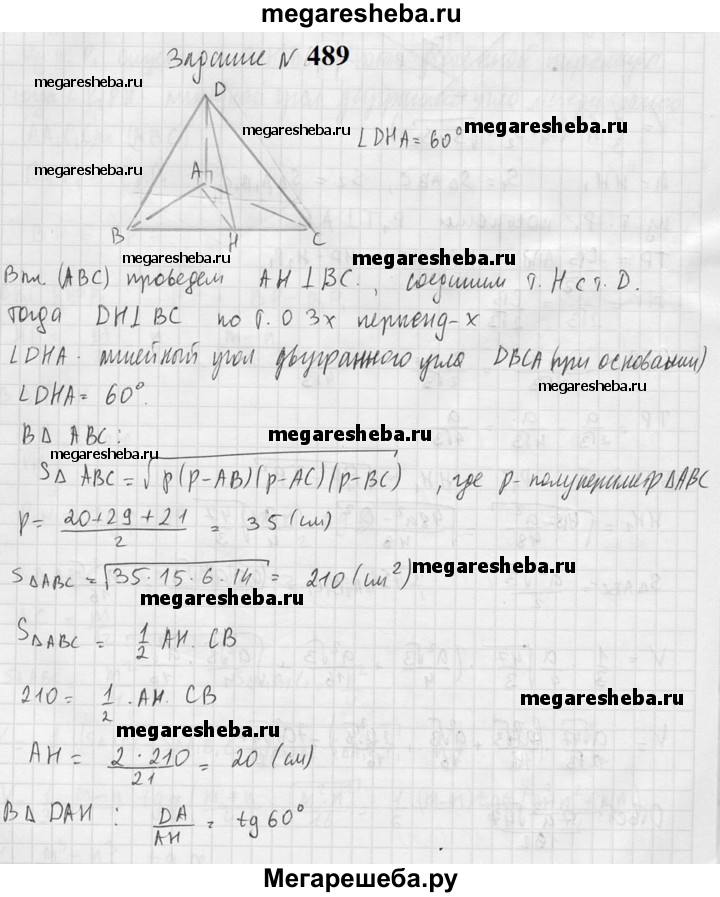 megaresheba.ru
Задание N 489
D
megaresheba.ru
megaresheba.ru
megaresheba.ru
∠DHA = 60°
megaresheba.ru
A
B
H
C
megaresheba.ru
megaresheba.ru
В пл. (ABC) проведем AH ⊥ BC., соединим т. H с т. D.
тогда DH ⊥ BC по т. о 3х перпенд-х
∠DHA - линейный угол двугранного угла DBCA (при основании)
megaresheba.ru
∠DHA = 60°.
В Δ ABC:
megaresheba.ru
megaresheba.ru
SΔ ABC = √p(p-AB)(p-AC)(p-BC) , где p- полупериметр ΔABC
p = (20+29+21)/2 = 35 (см)
SΔABC = √35·15·6·14 = 210 (см²)
megaresheba.ru
megaresheba.ru
SΔABC = 1/2 AH. CB
210 = 1/2 . AH. CB
megaresheba.ru
megaresheba.ru
AH = (2·210)/21 = 20 (см)
В Δ DAH : DA/AH = tg 60°
megaresheba.ru
Мегарешеба.ру